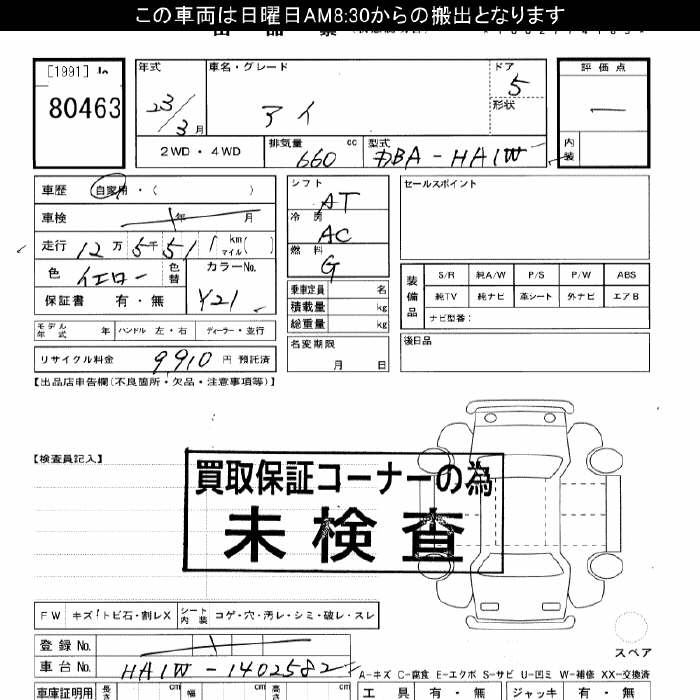 この車両は日曜日AM8:30からの搬出となります
[1991]
80463
年式
23/3月
車名・グレード
アイ
ドア
5
形状
評価点
内装
2WD・4WD
排気量
660 cc
型式
DBA-HA1W
車歴 自家用・( )
車検 年 月
走行 12万5千51 km マイル( )
色 イエロー 色替
カラーNo.
Y21
保証書 有・無
モデル年式 年 ハンドル 左・右 ディーラー・並行
リサイクル料金 9,910 円 預託済
シフト
AT
冷房
AC
燃料
G
乗車定員 名
積載量 kg
総重量 kg
名変期限
月 日
セールスポイント
装備品
S/R 純A/W P/S P/W ABS
純TV 純ナビ 革シート 外ナビ エアB
ナビ型番:
後日品
【出品店申告欄(不良箇所・欠品・注意事項等)】
【検査員記入】
買取保証コーナーの為
未検査
FW キズ!トビ石・割レX シート内装 コゲ・穴・汚レ・シミ・破レ・スレ
スペア
登録No.
車台No. HA1W-1402582
A-キズ C-腐食 E-エクボ S-サビ U-凹ミ W-補修 XX-交換済
車庫証明用 長さ cm 幅 cm 高さ cm
工具 有・無 ジャッキ 有・無